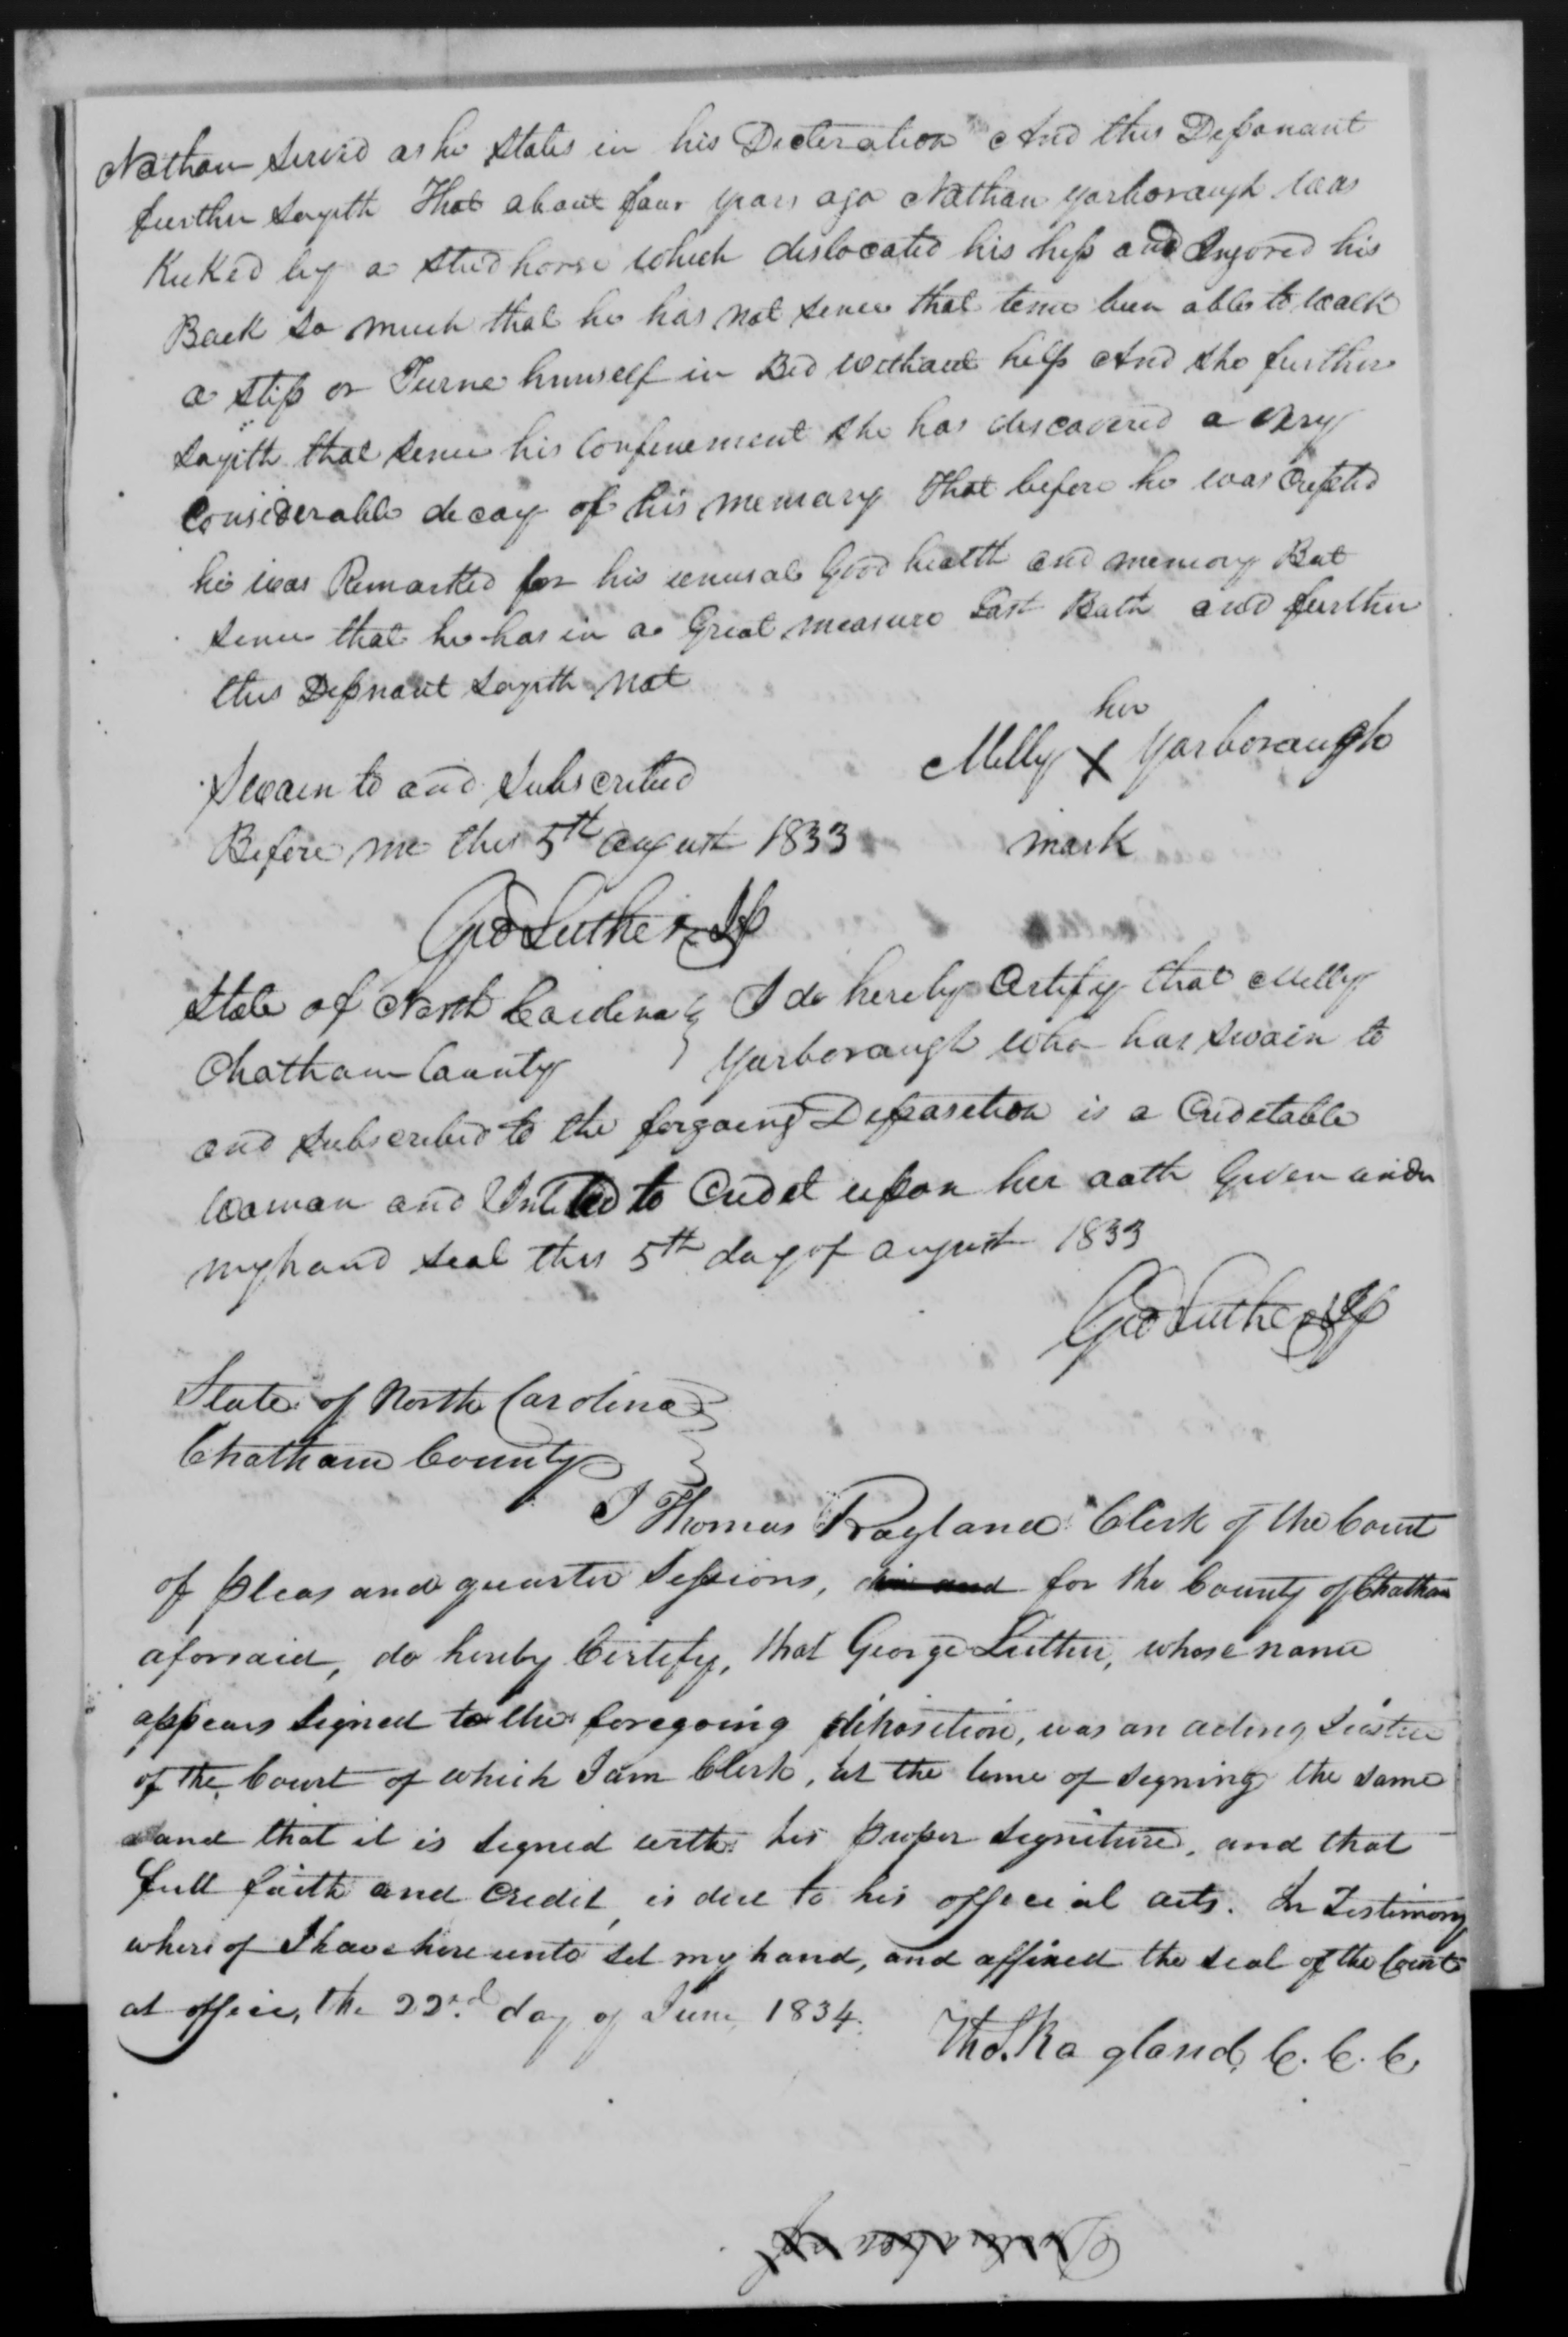 Nathan Served as he States in his Decteration And this Deponant
further Sayith That about four years ago Nathan Yarboraugh was
Kicked by a Studhorse which dislocated his hip and Injored his
Back So much that he has not Since that time been able to walk
a Step or Turne himself in Bed without help And She further
Sayith that Since his Confinement She has discovered a very
Considerable decay of his memary That before he was Crepled
he was Remarked for his unusal Good health and memory But
Since that he has in a Great measure Lost Both and further
this Depnant Sayith not
her
Milly X Yarboraugh
mark
Swoarn to and Subscribed
Before me this 5th august 1833
Geo Luther JP
State of North Carolina } I do hereby Certify that Milly
Chatham County } Yarboraugh who has Swoin to
and Subscribed to the forgoing Deposition is a Credetable
Woman and Intitled to Credet upon her oath Given under
my hand Seal this 5th day of august 1833
Geo Luther JP
State of North Carolina }
Chatham County }
I Thomas Ragland Clerk of the Court
of pleas and quarter Sessions, in and for the County of Chatham
aforsaid, do hereby Certify, that George Luther, whose name
appears Signed to the foregoing deposition, was an acting Justice
of the Court of which I am Clerk, at the time of Signing the Same
and that it is Signed with his proper Signiture, and that
full faith and Credit, is due to his official acts. In Testimony
where of I have here unto Set my hand, and affixed the Seal of the Court
at office, the 22nd day of June 1834.
Tho. Ragland, C. C. C.